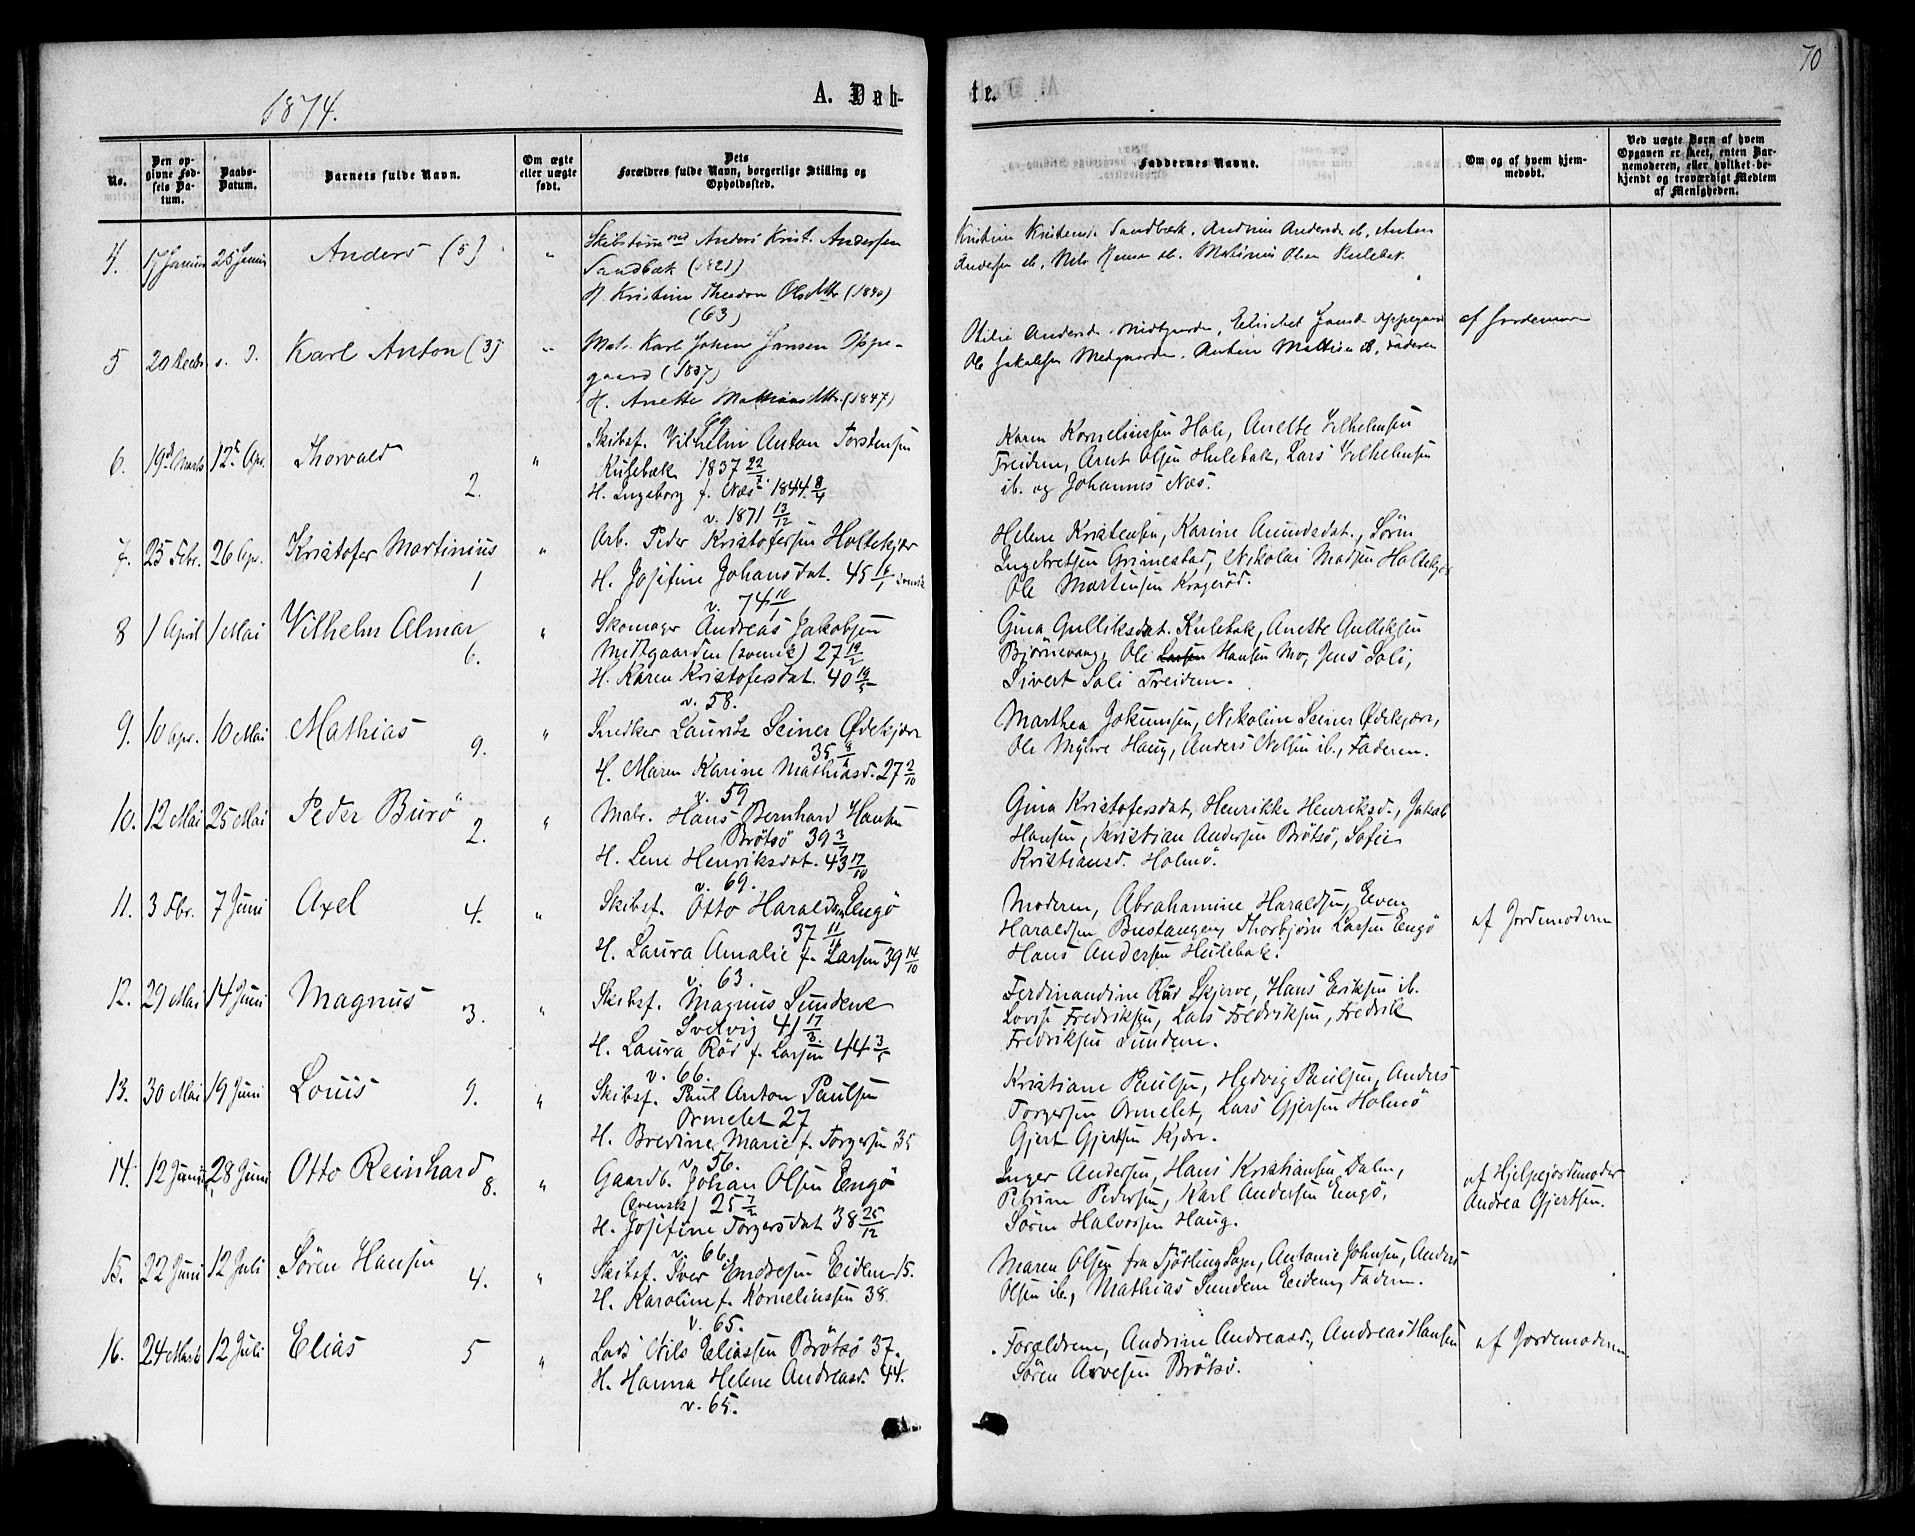 70
1874.
A. Døb-
te.
No.
Den op-
givne Fød-
sels Da-
tum.
Daabs-
Datum.
Barnets fulde Navn.
Om ægte
eller uægte
født.
Dets
Forældres fulde Navn, borgerlige Stilling og
Opholdssted.
Faddernes Navne.
Om og af hvem hjem-
medøbt.
Ved uægte Børn af hvem
Opgaven er skeet, enten Bar-
nemoderen, eller hvilket be-
kjendt og troværdigt Medlem
af Menigheden.
4. 17 Januar 25 Januar Anders (5) "
Anders Krist. Andersen
Sandbæk
H. Kristine Olsdttr (1840)
(63)
Sandbæk. Anton
Andersen ib. Hulebak
5 20 Decbr s. D. Karl Anton (3) "
Mat. Karl Johan Jansen Oppe-
gaard (1837)
H. Anette Mathiasdttr. (1847)
69
Otilie Andersd. Midtgaarden,
Ole Jakobsen Medgaarden. Faderen
af Jordemoren
6. 19d Marts 12te Apr. Thorvald 2. "
Skibsf. Vilhelm Anton Torstensen
Hulebæk 1837 22/2.
H. Ingeborg f. Næs 1844 8/4
v. 1871 13/12
Karen Kornelinssen Hole, Anette Vilhelmsen
Treidem, Arnt Olsen Hulebak, Lars Vilhelmsen
ib. og Johannes Næs.
7. 25 Febr. 26 Apr. Kristofer Martinius 1 "
Arb. Peder Kristofersen Holtekjær
H. Josefine Johansdat. 45 6/1
v. 74 10/1
Helene Kristensen, Karine Amundsdat., Søren
Ingebretsen Grimestad, Nikolai Madsen Holtekjær
Ole Martinsen Kragerød.
8 1 April 1 Mai Vilhelm Almar 6. "
Skomager Andreas Jakobsen
Midtgaarden (svensk) 27 19/2
H. Karen Kristofersdat. 40 19/5
v. 58.
Gina Gulliksdat. Hulebak, Anette Gulliksen
Bjørnevang, Ole Larsen Hansen Mo, Jens Soli,
Sivert Soli Treidem.
9. 10 Apr. 10 Mai Mathias 9. "
Snedker Lauritz Seiner Ødekjær
35 9/4
H. Maren Karine Mathiasd. 27 2/10
v. 59
Marthea Jokumsen, Nikoline Seiner Ødekjær,
Ole Myhre Haug, Anders Nilsen ib., Faderen.
10. 12 Mai 25 Mai Peder Burø 2. "
Matr. Hans Bernhard Hansen
Brøtsø 39 3/7
H. Lene Henriksdat. 43 17/10
v. 69.
Gina Kristofersdat, Henrikke Henriksd., Jakob
Hansen, Kristian Andersen Brøtsø, Sofie
Kristiansd. Holmø.
11. 3 Fbr. 7 Juni Axel 4. "
Skibsf. Otto Haraldsen Engø
37 11/11
H. Laura Amalie f. Larsen 39 14/10
v. 63.
Moderen, Abrahamine Haraldsen, Even
Haraldsen Bustangen, Thorbjørn Larsen Engø
Hans Andersen Hulebak.
af Jordemoderen
12. 29 Mai 14 Juni Magnus 3. "
Skibsf. Magnus Sundene
Svelvig 41 17/8.
H. Laura Rød f. Larsen 44 3/5
v. 66.
Ferdinandine Rød Skjerve, Hans Eriksen ib.
Lovise Fredriksen, Lars Fredriksen, Fredrik
Fredriksen Sundene.
13. 30 Mai 19 Juni Louis 9. "
Skibsf. Paul Anton Paulsen
Ormelet 27
H. Bredine Marie f. Torgersen 35
v. 56.
Kristiane Paulsen, Hedvig Paulsen, Anders
Torgersen Ormelet, Lars Gjersen Holmø
Gjert Gjertsen Kjære.
14. 12 Juni 28 Juni Otto Reinhard 8. "
Gaardb. Johan Olsen Engø
(svensk) 25 7/2
H. Josefine Torgersdat 38 25/12
v. 66.
Inger Andersen, Hans Kristiansen Dalen,
Petrine Pedersen, Karl Andersen Engø,
Søren Halvorsen Haug.
af Hjelpejordemoder
Andrea Gjertsen.
15. 22 Juni 12 Juli Søren Hansen 4. "
Skibsf. Iver Endresen Eidene 15.
H. Karoline f. Kornelinssen 38
v. 65.
Maren Olsen fra Sjøtling Sogn, Antonie Johnsen, Anders
Olsen ib., Mathias Sundene Eidene, Faderen.
16. 24 Marts 12 Juli Elias 5 "
Lods Nils Eliassen Brøtsø 37.
H. Hanna Helene Andreasd. 44.
v. 65.
Forældrene, Andrine Andreasd., Andreas Hansen
Søren Arvesen Brøtsø.
af Jordemoderen.